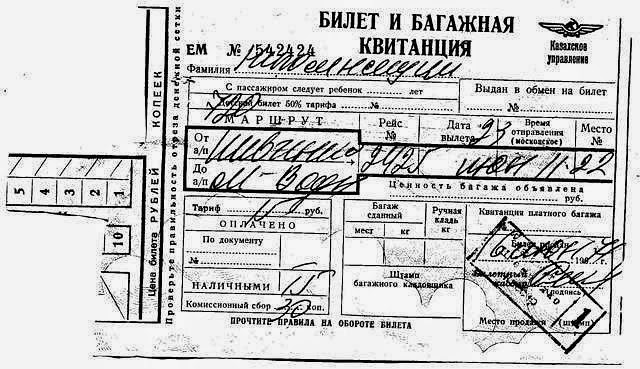 БИЛЕТ И БАГАЖНАЯ КВИТАНЦИЯ
Казахское управление
ЕМ № 542424
Фамилия
С пассажиром следует ребенок лет
Детский билет 50% тарифа №
Выдан в обмен на билет
№
МАРШРУТ
Рейс №
Дата вылета 23
Время отправления (московское)
Место №
От а/п Шевченко
2425 июн 11-22
До а/п М-Воды
Ценность багажа объявлена
руб.
Тариф руб.
ОПЛАЧЕНО
По документу
№
НАЛИЧНЫМИ
Комиссионный сбор 30 коп.
Багаж сданный
мест кг
Ручная кладь кг
Штамп багажного кладовщика
Квитанция платного багажа
№
Билет продан
198 г.
Билетный кассир
(подпись)
Место продажи (штамп)
1
ПРОЧТИТЕ ПРАВИЛА НА ОБОРОТЕ БИЛЕТА
Проверьте правильность отреза денежной сетки
Цена билета РУБЛЕЙ КОПЕЕК
5 4 3 2 1
10